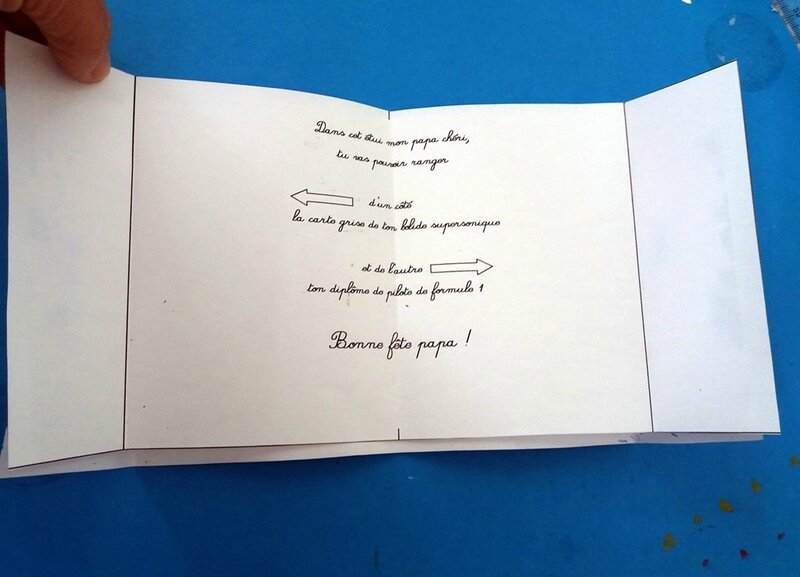 Dans cet étui mon papa chéri,
tu vas pouvoir ranger
d'un côté
la carte grise de ton bolide supersonique
et de l'autre
ton diplôme de pilote de formule 1
Bonne fête papa !